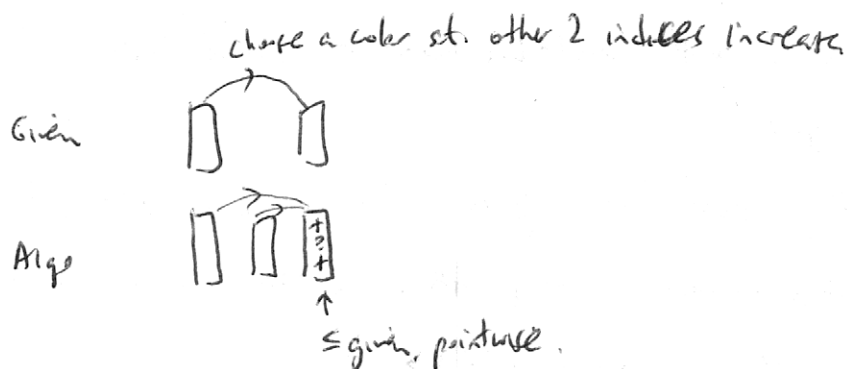 choose a color s.t. other 2 indices increase
Given
+
?
+
Algo
≤ given, pointwise.